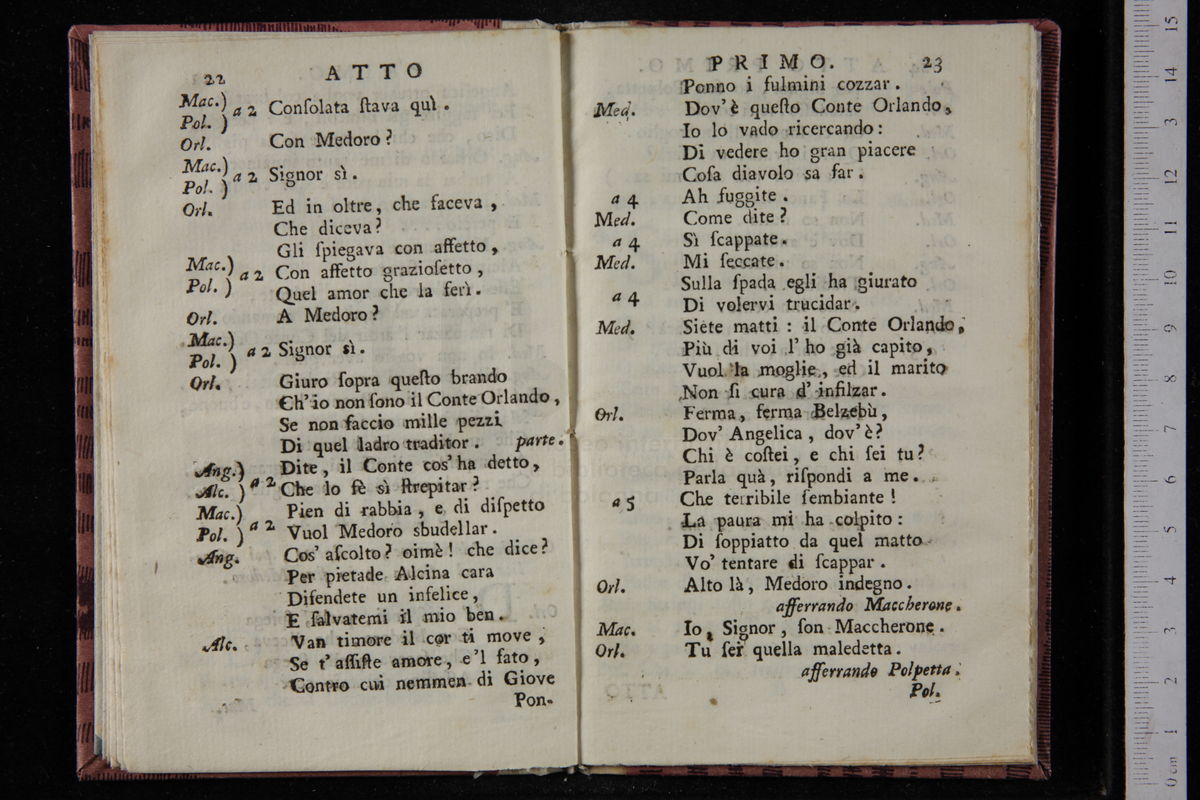 22 ATTO
Mac.) a 2 Conſolata ſtava quì.
Pol. )
Orl. Con Medoro?
Mac.) a 2 Signor sì.
Pol. )
Orl. Ed in oltre, che faceva,
Che diceva?
Gli ſpiegava con affetto,
Mac.) a 2 Con affetto grazioſetto,
Pol. ) Quel amor che la ferì.
Orl. A Medoro?
Mac.) a 2 Signor sì.
Pol. )
Orl. Giuro ſopra queſto brando
Ch'io non ſono il Conte Orlando,
Se non faccio mille pezzi
Di quel ladro traditor. parte.
Ang.) a 2 Dite, il Conte cos'ha detto,
Alc. ) Che lo fè sì ſtrepitar?
Mac.) a 2 Pien di rabbia, e di diſpetto
Pol. ) Vuol Medoro sbudellar.
Ang. Cos' aſcolto? oimè! che dice?
Per pietade Alcina cara
Difendete un infelice,
E ſalvatemi il mio ben.
Alc. Van timore il cor ti move,
Se t' aſſiſte amore, e'l fato,
Contro cui nemmen di Giove
Pon-
PRIMO. 23
Ponno i fulmini cozzar.
Med. Dov'è queſto Conte Orlando,
Io lo vado ricercando:
Di vedere ho gran piacere
Coſa diavolo sa far.
a 4 Ah fuggite.
Med. Come dite?
a 4 Sì ſcappate.
Med. Mi ſeccate.
a 4 Sulla ſpada egli ha giurato
Di volervi trucidar.
Med. Siete matti: il Conte Orlando,
Più di voi l'ho già capito,
Vuol la moglie, ed il marito
Non ſi cura d'infilzar.
Orl. Ferma, ferma Belzebù,
Dov' Angelica, dov'è?
Chi è coſtei, e chi ſei tu?
Parla quà, riſpondi a me.
a 5 Che terribile ſembiante!
La paura mi ha colpito:
Di ſoppiatto da quel matto
Vo' tentare di ſcappar.
Orl. Alto là, Medoro indegno.
afferrando Maccherone.
Mac. Io, Signor, ſon Maccherone.
Orl. Tu ſei quella maledetta.
afferrando Polpetta.
Pol.
15
14
13
12
11
10
9
8
7
6
5
4
3
2
1
0 cm